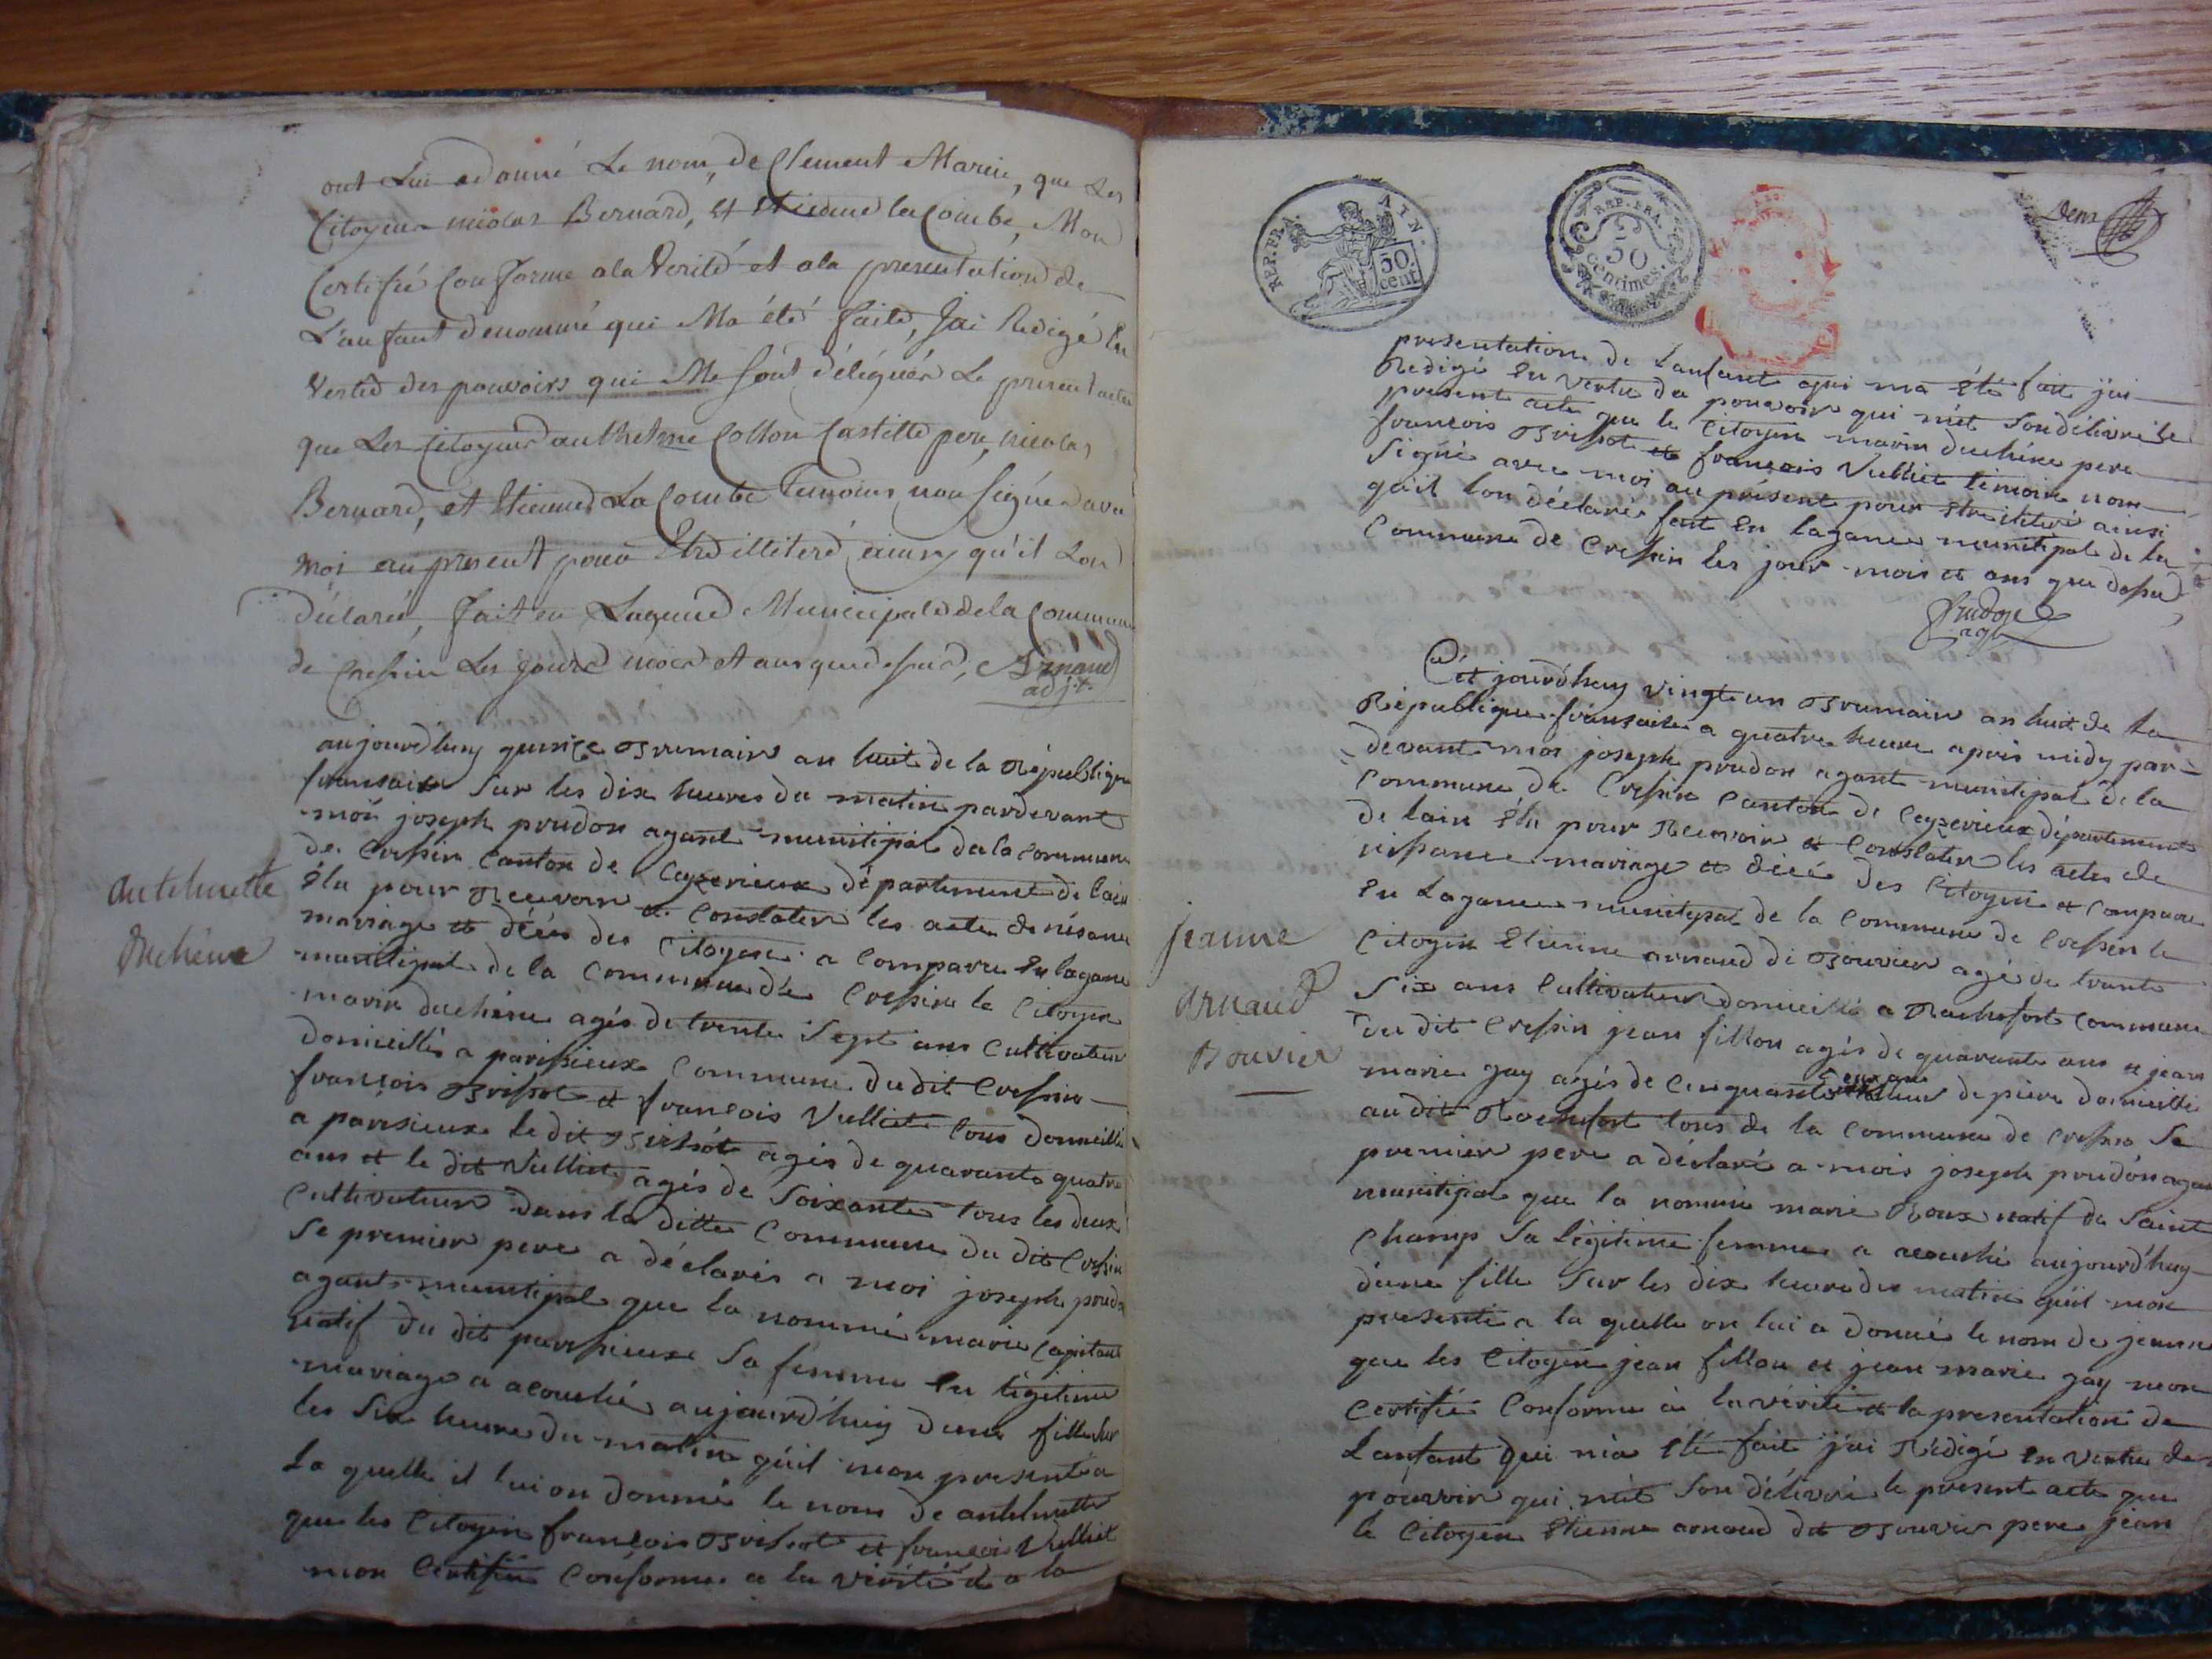 ont Lui a donné Le nom, de Clement Marie, que Les
Citoyens nicolas Bernard, et Etienne la Combe, M'on
Certifié Conforme a la Verité et a la presentation de
L'anfant denommé qui Ma été faite, Jai Redigé En
Vertu des pouvoirs qui Me sont délégués Le present acte
que Les Citoyens anthelme Collon Castille pere, nicolas
Bernard, et Etienne La Combe temoins non signés avec
moi au present pour Etre illiteré ainsy qu'il Lon
déclaré, fait en Lagence Municipale de la Commune
de Cressin Les jours mois et ans que dessus, Arnaud
adjt.
aujourdhuy quinze Brumaire an huit de la République
fransaise sur les dix heures du matin pardevant
moi joseph prudon agant munitipal de la commune
de Cressin Canton de Ceyzerieux département de lain
Élu pour Recevoir et Constater les actes de nésance
mariage et décès des Citoyens a comparu En lagance
munitipal de la Commune de Cressin le Citoyen
marin duchéne agés de trente sept ans Cultivateur
domicilliés a parissieux Commune du dit Cressin
françois Brissot et françois Vulliet tous domicillié
a parisieux le dit Brissot agés de quarante quatre
ans et le dit Vulliet agés de soixante tous les deux
Cultivateur dans la ditte Commune du dit Cressin
Se premier pere a déclarés a moi joseph prudon
agant munitipal que la nommé marie Capitant
Natif du dit parissieux sa femme En légitime
mariage a acouché aujourd'huy dune fille sur
les six heure du matin quil mon presenté a
la quelle il lui on donné le nom de antelmette
que les Citoyen françois Brissot et françois Vulliet
mon Certifié Conforme a la vérité et a la
antelmette
duchéne
deux
REP. FRA. AIN.
50 cent.
REP. FRA.
50
centimes.
presentation de lanfant qui ma été fait jai
Redigé En vertu du pouvoir qui m'et son délivré le
present acte que le Citoyen marin duchéne pere
françois Brissot et françois Vulliet témoin non
signé avec moi au présent pour étre iliteré ainsi
qu'il lon déclaré fait En lagance munitipale de la
Commune de Cressin les jour mois et ans que dessus
Prudon
agt
Cét jourd'huy vingt un Brumaire an huit de la
République fransaise a quatre heure aprés midy par
devant moi joseph prudon agant munitipal de la
Commune de Cressin Canton de Ceyzerieux département
de lain Élu pour Recevoir et Constater les actes de
nissance mariage et décé des Citoyen et Comparu
En Lagance munitipal de la Commune de Cressin le
Citoyen Etienne arnaud di Bouvier agé de trante
six ans Cultivateur domicillié a Rochefort Commune
du dit Cressin jean fillon agés de quarante ans et jean
marie gay agés de Cinquante deux ans tailleur de pière domicillié
au dit Rochefort tous de la Commune de Cressin Se
premier pere a déclaré a moi joseph prudon agant
munitipal que la nommée marie Roux natif de Saint
Champ Sa légitime femme a acouché aujourd'huy
d'une fille sur les dix heure du matin quil mon
presenté a la quelle on lui a donné le nom de jeanne
que les Citoyen jean fillon et jean marie gay mon
Certifié Conforme à la vérité et la presentation de
Lanfant qui m'a été fait j'ai Rédigé En vertu des
pouvoir qui m'et son délivré le present acte que
le Citoyen Etienne arnaud dit Bouvier pere jean
jeanne
Arnaud
Bouvier